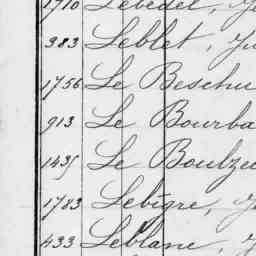 1710 Lebedel, J
383 Leblet, Ju
1756 Le Beschu
913 Le Bourba
1435 Le Boulzu
1783 Lebigre, J
433 Leblanc, J